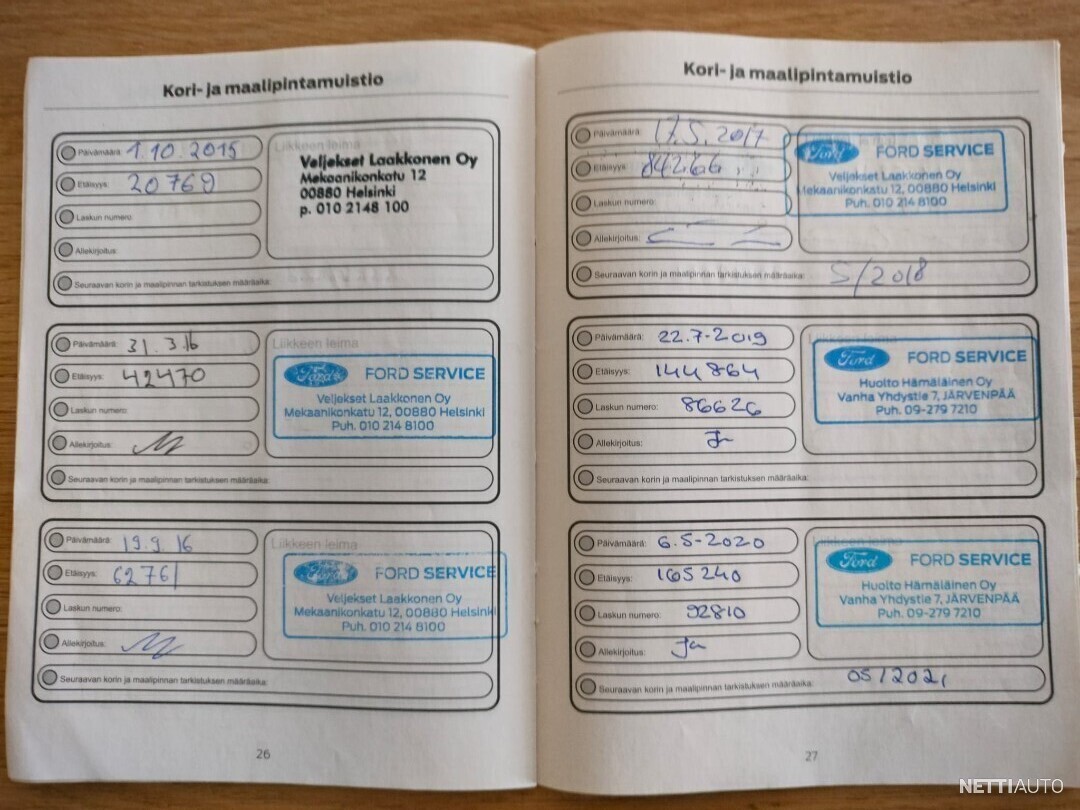 Kori- ja maalipintamuistio
Päivämäärä: 1.10.2015
Etäisyys: 20769
Laskun numero:
Allekirjoitus:
Liikkeen leima
Veljekset Laakkonen Oy
Mekaanikonkatu 12
00880 Helsinki
p. 010 2148 100
Seuraavan korin ja maalipinnan tarkistuksen määräaika:
Päivämäärä: 31.3.16
Etäisyys: 42470
Laskun numero:
Allekirjoitus:
Liikkeen leima
Ford FORD SERVICE
Veljekset Laakkonen Oy
Mekaanikonkatu 12, 00880 Helsinki
Puh. 010 214 8100
Seuraavan korin ja maalipinnan tarkistuksen määräaika:
Päivämäärä: 19.9.16
Etäisyys: 62761
Laskun numero:
Allekirjoitus:
Liikkeen leima
Ford FORD SERVICE
Veljekset Laakkonen Oy
Mekaanikonkatu 12, 00880 Helsinki
Puh. 010 214 8100
Seuraavan korin ja maalipinnan tarkistuksen määräaika:
26
Kori- ja maalipintamuistio
Päivämäärä: 17.5.2017
Etäisyys: 84266
Laskun numero:
Allekirjoitus:
Liikkeen leima
Ford FORD SERVICE
Veljekset Laakkonen Oy
Mekaanikonkatu 12, 00880 Helsinki
Puh. 010 214 8100
Seuraavan korin ja maalipinnan tarkistuksen määräaika: 5/2018
Päivämäärä: 22.7-2019
Etäisyys: 144864
Laskun numero: 86626
Allekirjoitus:
Liikkeen leima
Ford FORD SERVICE
Huolto Hämäläinen Oy
Vanha Yhdystie 7, JÄRVENPÄÄ
Puh. 09-279 7210
Seuraavan korin ja maalipinnan tarkistuksen määräaika:
Päivämäärä: 6.5-2020
Etäisyys: 165240
Laskun numero: 92810
Allekirjoitus:
Liikkeen leima
Ford FORD SERVICE
Huolto Hämäläinen Oy
Vanha Yhdystie 7, JÄRVENPÄÄ
Puh. 09-279 7210
Seuraavan korin ja maalipinnan tarkistuksen määräaika: 05/2021
27
NETTIAUTO